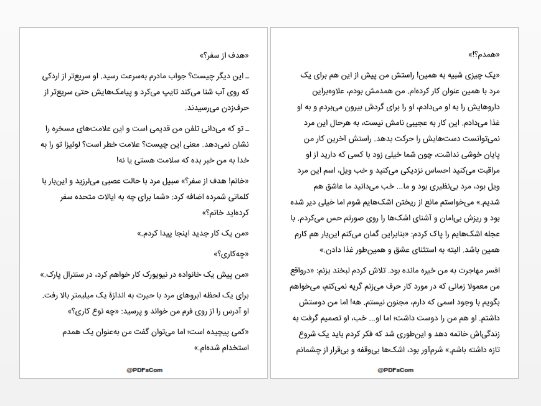 «هدف از سفر؟»
ـ این دیگر چیست؟ جواب مادرم به‌سرعت رسید. او سریع‌تر از اردکی
که روی آب شنا می‌کند تایپ می‌کرد و پیامک‌هایش حتی سریع‌تر از
حرف‌زدن می‌رسیدند.
ـ تو که می‌دانی تلفن من قدیمی است و این علامت‌های مسخره را
نشان نمی‌دهد. معنی این چیست؟ علامت خطر است؟ لوئیزا تو را به
خدا به من خبر بده که سلامت هستی یا نه!
«خانم! هدف از سفر؟» سبیل مرد با حالت عصبی می‌لرزید و این‌بار با
کلماتی شمرده اضافه کرد: «شما برای چه به ایالات متحده سفر
کرده‌اید خانم؟»
«من یک کار جدید اینجا پیدا کردم.»
«چه‌کاری؟»
«من پیش یک خانواده در نیویورک کار خواهم کرد، در سنترال پارک.»
برای یک لحظه ابروهای مرد با حیرت به اندازهٔ یک میلیمتر بالا رفت.
او آدرس را از روی فرم من خواند و پرسید: «چه نوع کاری؟»
«کمی پیچیده است؛ اما می‌توان گفت من به‌عنوان یک همدم
استخدام شده‌ام.»
@PDFsCom
«همدم؟!»
«یک چیزی شبیه به همین! راستش من پیش از این هم برای یک
مرد با همین عنوان کار کرده‌ام. من همدمش بودم، علاوه‌براین
داروهایش را به او می‌دادم، او را برای گردش بیرون می‌بردم و به او
غذا می‌دادم. این کار به عجیبی نامش نیست، به هرحال این مرد
نمی‌توانست دست‌هایش را حرکت بدهد. راستش آخرین کار من
پایان خوشی نداشت، چون شما خیلی زود با کسی که دارید از او
مراقبت می‌کنید احساس نزدیکی می‌کنید و خب ویل، اسم این مرد
ویل بود، مرد بی‌نظیری بود و ما... خب می‌دانید ما عاشق هم
شدیم.» می‌خواستم مانع از ریختن اشک‌هایم شوم اما خیلی دیر شده
بود و ریزش بی‌امان و آشنای اشک‌ها را روی صورتم حس می‌کردم. با
عجله اشک‌هایم را پاک کردم: «بنابراین گمان می‌کنم این‌بار هم کارم
همین باشد. البته به استثنای عشق و همین‌طور غذا دادن.»
افسر مهاجرت به من خیره مانده بود. تلاش کردم لبخند بزنم: «درواقع
من معمولا زمانی که در مورد کار حرف می‌زنم گریه نمی‌کنم، می‌خواهم
بگویم با وجود اسمی که دارم، مجنون نیستم. هه! اما من دوستش
داشتم. او هم من را دوست داشت؛ اما او... خب، او تصمیم گرفت به
زندگی‌اش خاتمه دهد و این‌طوری شد که فکر کردم باید یک شروع
تازه داشته باشم.» شرم‌آور بود، اشک‌ها بی‌وقفه و بی‌قرار از چشمانم
@PDFsCom